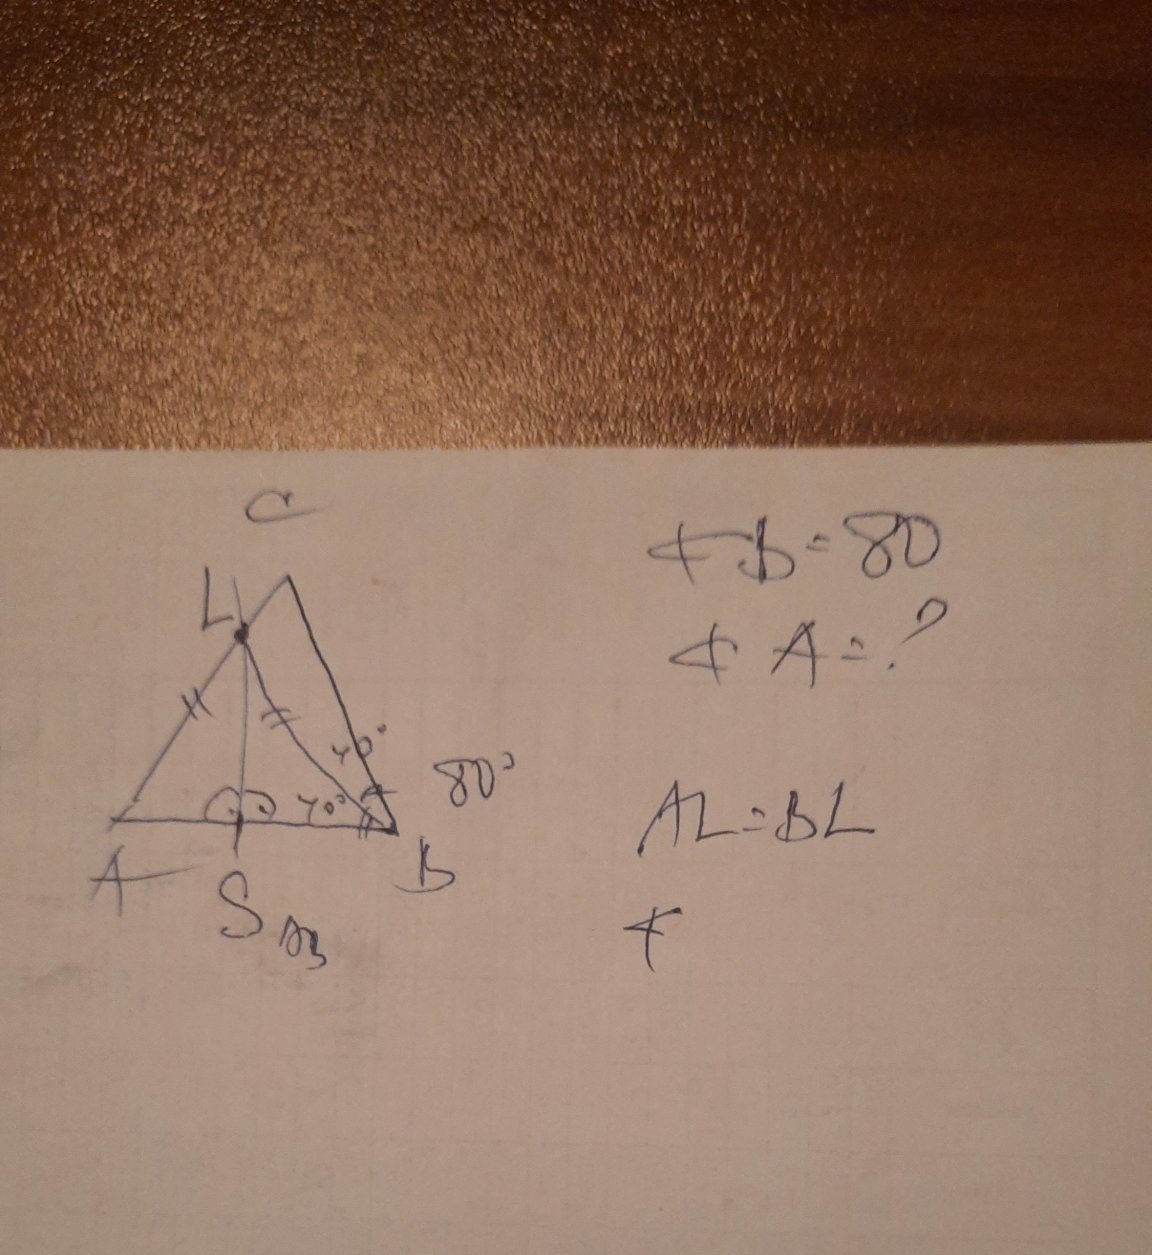 C
L
40°
40°
80°
A
S AB
B
∢B=80
∢A=?
AL=BL
∢